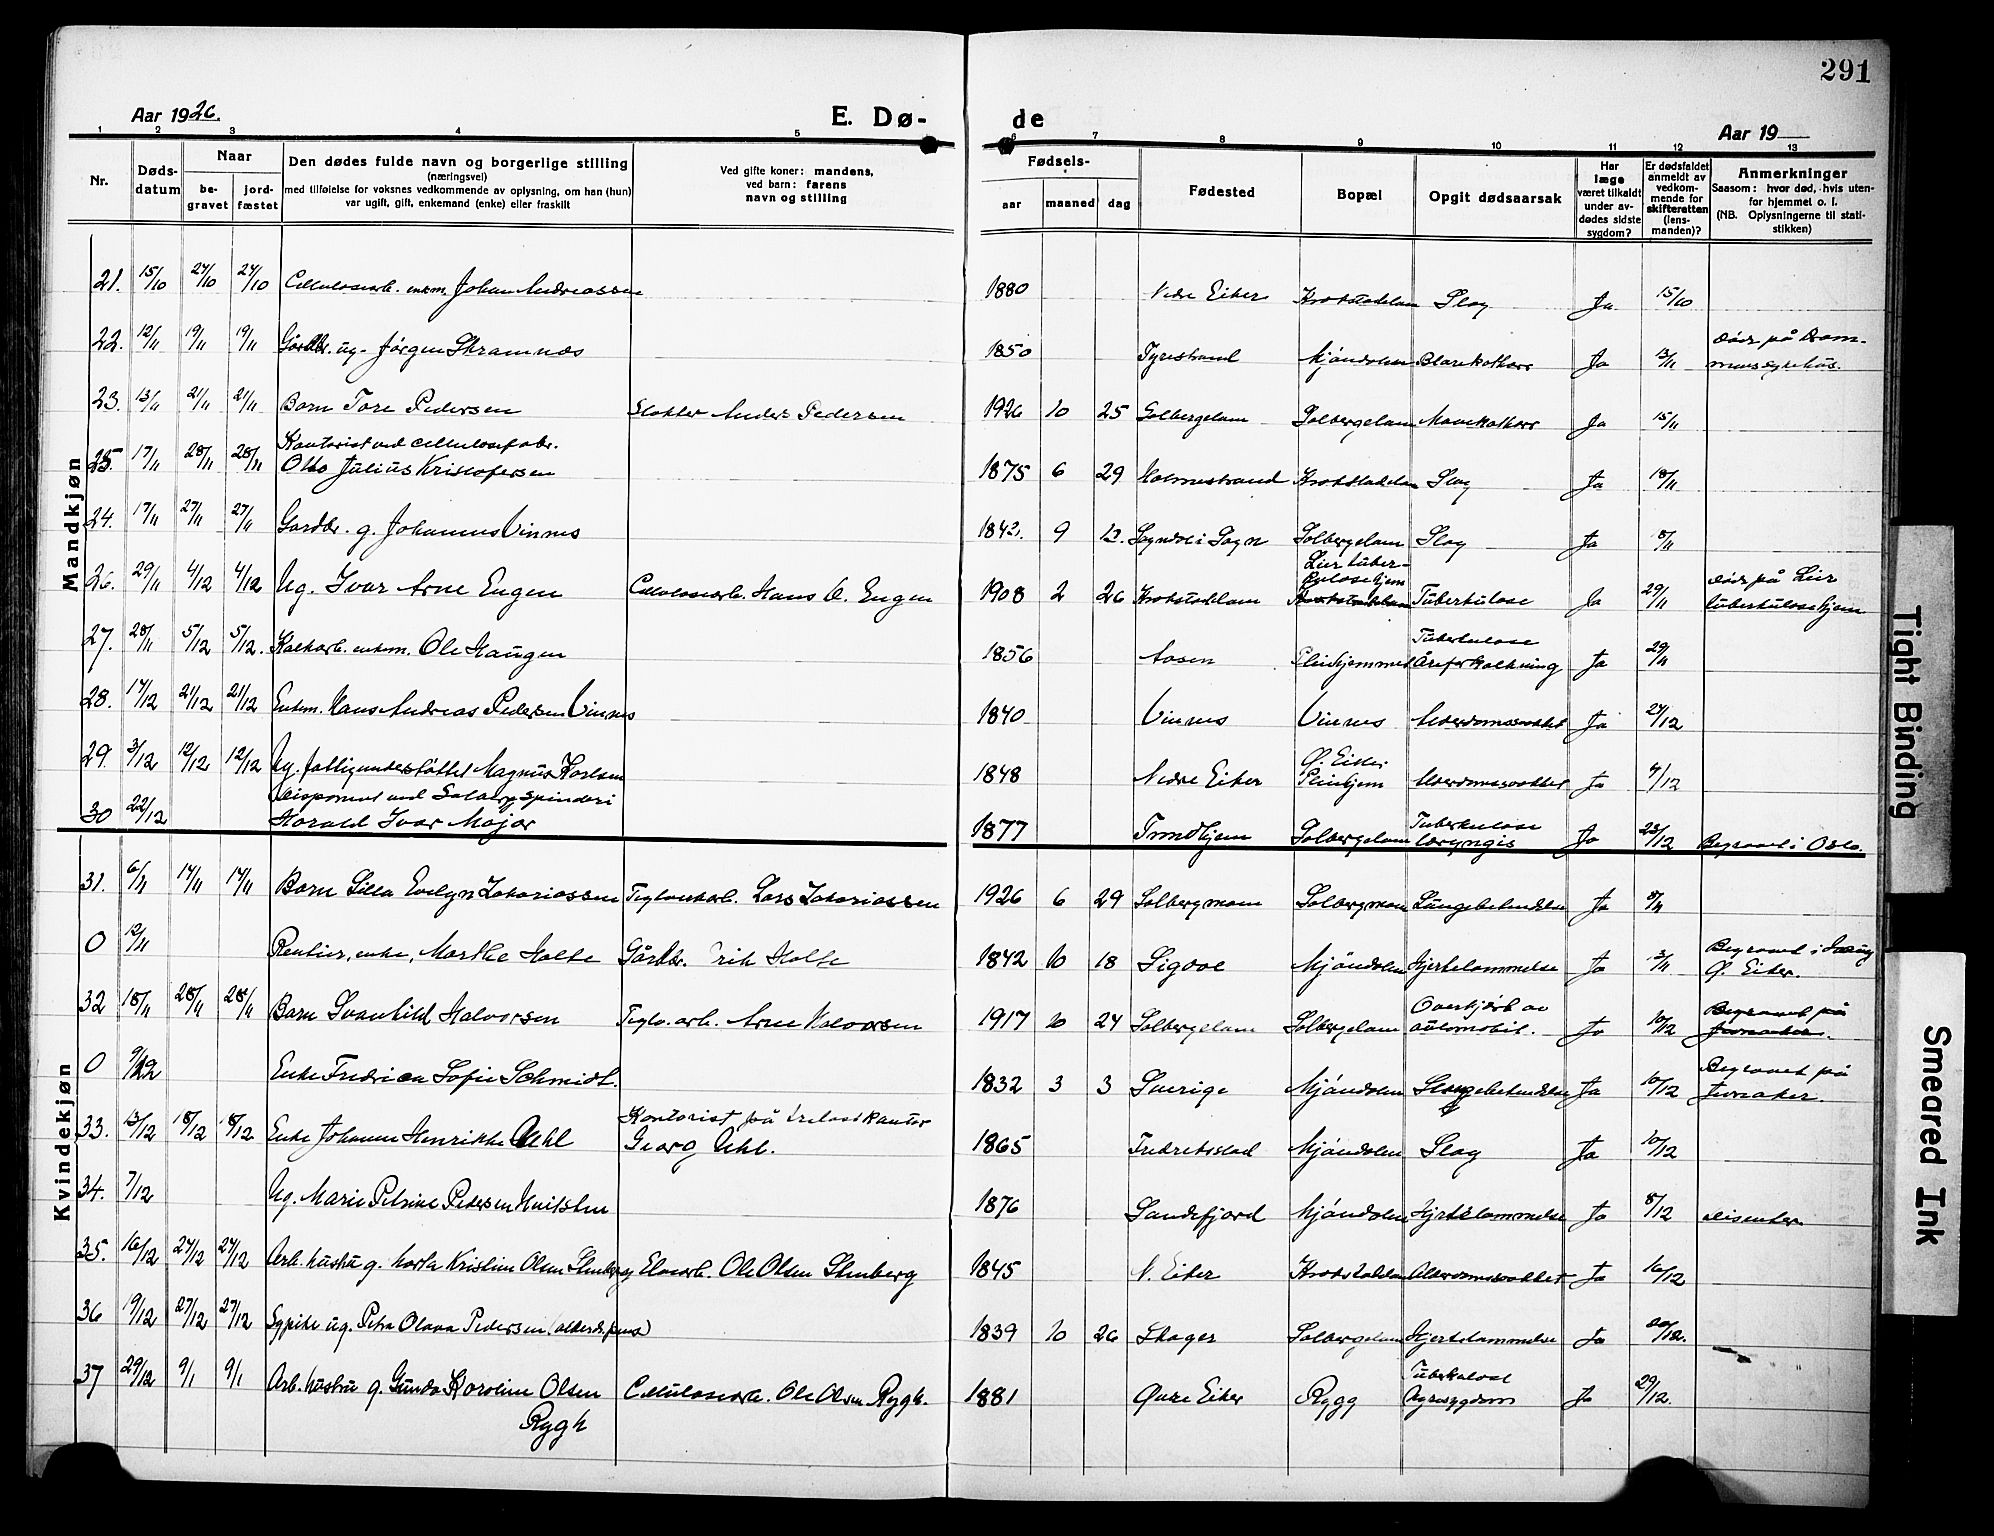 291
Aar 1926.
E. Dø-
de
Aar 19
1 2 3 4 5 6 7 8 9 10 11 12 13
Nr.
Døds-
datum
Naar
be-
gravet
jord-
fæstet
Den dødes fulde navn og borgerlige stilling
(næringsvei)
med tilføielse for voksnes vedkommende av oplysning, om han (hun)
var ugift, gift, enkemand (enke) eller fraskilt
Ved gifte koner: mandens,
ved barn: farens
navn og stilling
Fødsels-
aar maaned dag
Fødested
Bopæl
Opgit dødsaarsak
Har
læge
været tilkaldt
under av-
dødes sidste
sygdom?
Er dødsfaldet
anmeldt av
vedkom-
mende for
skifteretten
(lens-
manden)?
Anmerkninger
Saasom: hvor død, hvis uten-
for hjemmet o. l.
(NB. Oplysningerne til stati-
stikken)
Mandkjøn
21. 15/10 24/10 24/10 Cellulosearb. enkem. Johan Andreassen 1880 Nedre Eiker Krokstadelven Slag Ja 15/10
22. 12/11 19/11 19/11 Gårdbr. ug. Jørgen Skramnæs 1850 Tyristrand Mjøndalen Blærekatharr Ja 13/11 død på Dram-
mens sykehus.
23. 13/11 21/11 21/11 Barn Tore Pedersen Anders Pedersen 1926 10 25 Solbergelven Solbergelven Mavekatharr Ja 15/11
Kontorist ved cellulosefabr.
25. 17/11 28/11 28/11 Otto Julius Kristofersen 1875 6 29 Holmestrand Krokstadelven Slag Ja 18/11
24. 17/11 27/11 27/11 Gardbr. g. Johannes Vinnes 1842 9 12. Sogndal i Sogn Solbergelven Slag Ja 18/11
Lier tuber-
kulosehjem
26. 29/11 4/12 4/12 Ug. Ivar Arne Engen Cellulosearb. Hans O. Engen 1908 2 26 Krokstadelven Krokstadelven Tuberkulose Ja 29/11 død på Lier
tuberkulosehjem
Tuberkulose
27. 28/11 5/12 5/12. enkem. Ole Haugen 1856 Aasen Pleiehjemmet Åreforkalkning Ja 29/11
28. 14/12 21/12 21/12 Enkem. Hans Andreas Pedersen Vinnes 1840 Vinnes Vinnes Alderdomssvakhet Ja 24/12
Ø. Eiker
29. 3/12 12/12 12/12 Ug. fattigunderstøttet Magnus Karlsen 1848 Nedre Eiker Pleiehjem Alderdomssvakhet Ja 4/12
Disponent ved Solberg spinderi
Tuberkulose
30 22/12 Harald Ivar Major 1877 Trondhjem Solbergelven laryngis Ja 23/12 Begravet i Oslo.
Kvindekjøn
31. 6/11 14/11 14/11 Barn Lilla Evelyn Zakariassen Teglverkarb. Lars Zakariassen 1926 6 29 Solbergmoen Solbergmoen Lungebetændelse Ja 8/11
0 12/11 Rentier, enke, Marthe Holte Gårdbr. Erik Holte 1842 10 18 Sigdal Mjøndalen Hjertelammelse Ja 13/11 Begravet i
Ø. Eiker.
Overkjørt av
Begravet på
32 18/11 28/11 28/11 Barn Svanhild Halvorsen Teglv.arb. Arne Halvorsen 1917 10 24 Solbergelven Solbergelven automobil. Ja 10/12
0 9/12 Enke Fredrica Sofie Schmidt. 1832 3 3 Sverige Mjøndalen Lungebetændelse Ja 10/12 Begravet på
Kontorist på
33. 13/12 18/12 18/12 Enke Johanne Henrikke Uehl Georg Uehl. 1865 Fredrikstad Mjøndalen Slag Ja 10/12
34. 7/12 Ug. Marie Petrine Pedersen Hvitsten 1876 Sandefjord Mjøndalen Hjertelammelse Ja 8/12 dissenter.
35. 16/12 24/12 24/12 Arb. hustru g. Marta Kristine Olsen Stenberg Ole Olsen Stenberg 1845 N. Eiker Krokstadelven Alderdomssvakhet Ja 16/12
36 19/12 27/12 27/12 Sypike ug. Petra Olava Pedersen (alderdspens) 1839 10 26 Skoger Solbergelven Hjertelammelse Ja 20/12.
Tuberkuløs
37 29/12 9/1 9/1 Arb. hustru g. Gunda Karoline Olsen Cellulosearb. Ole Olsen Rygh. 1881 Øvre Eiker Rygg Ja 29/12.
Rygh
Tight Binding
Smeared Ink